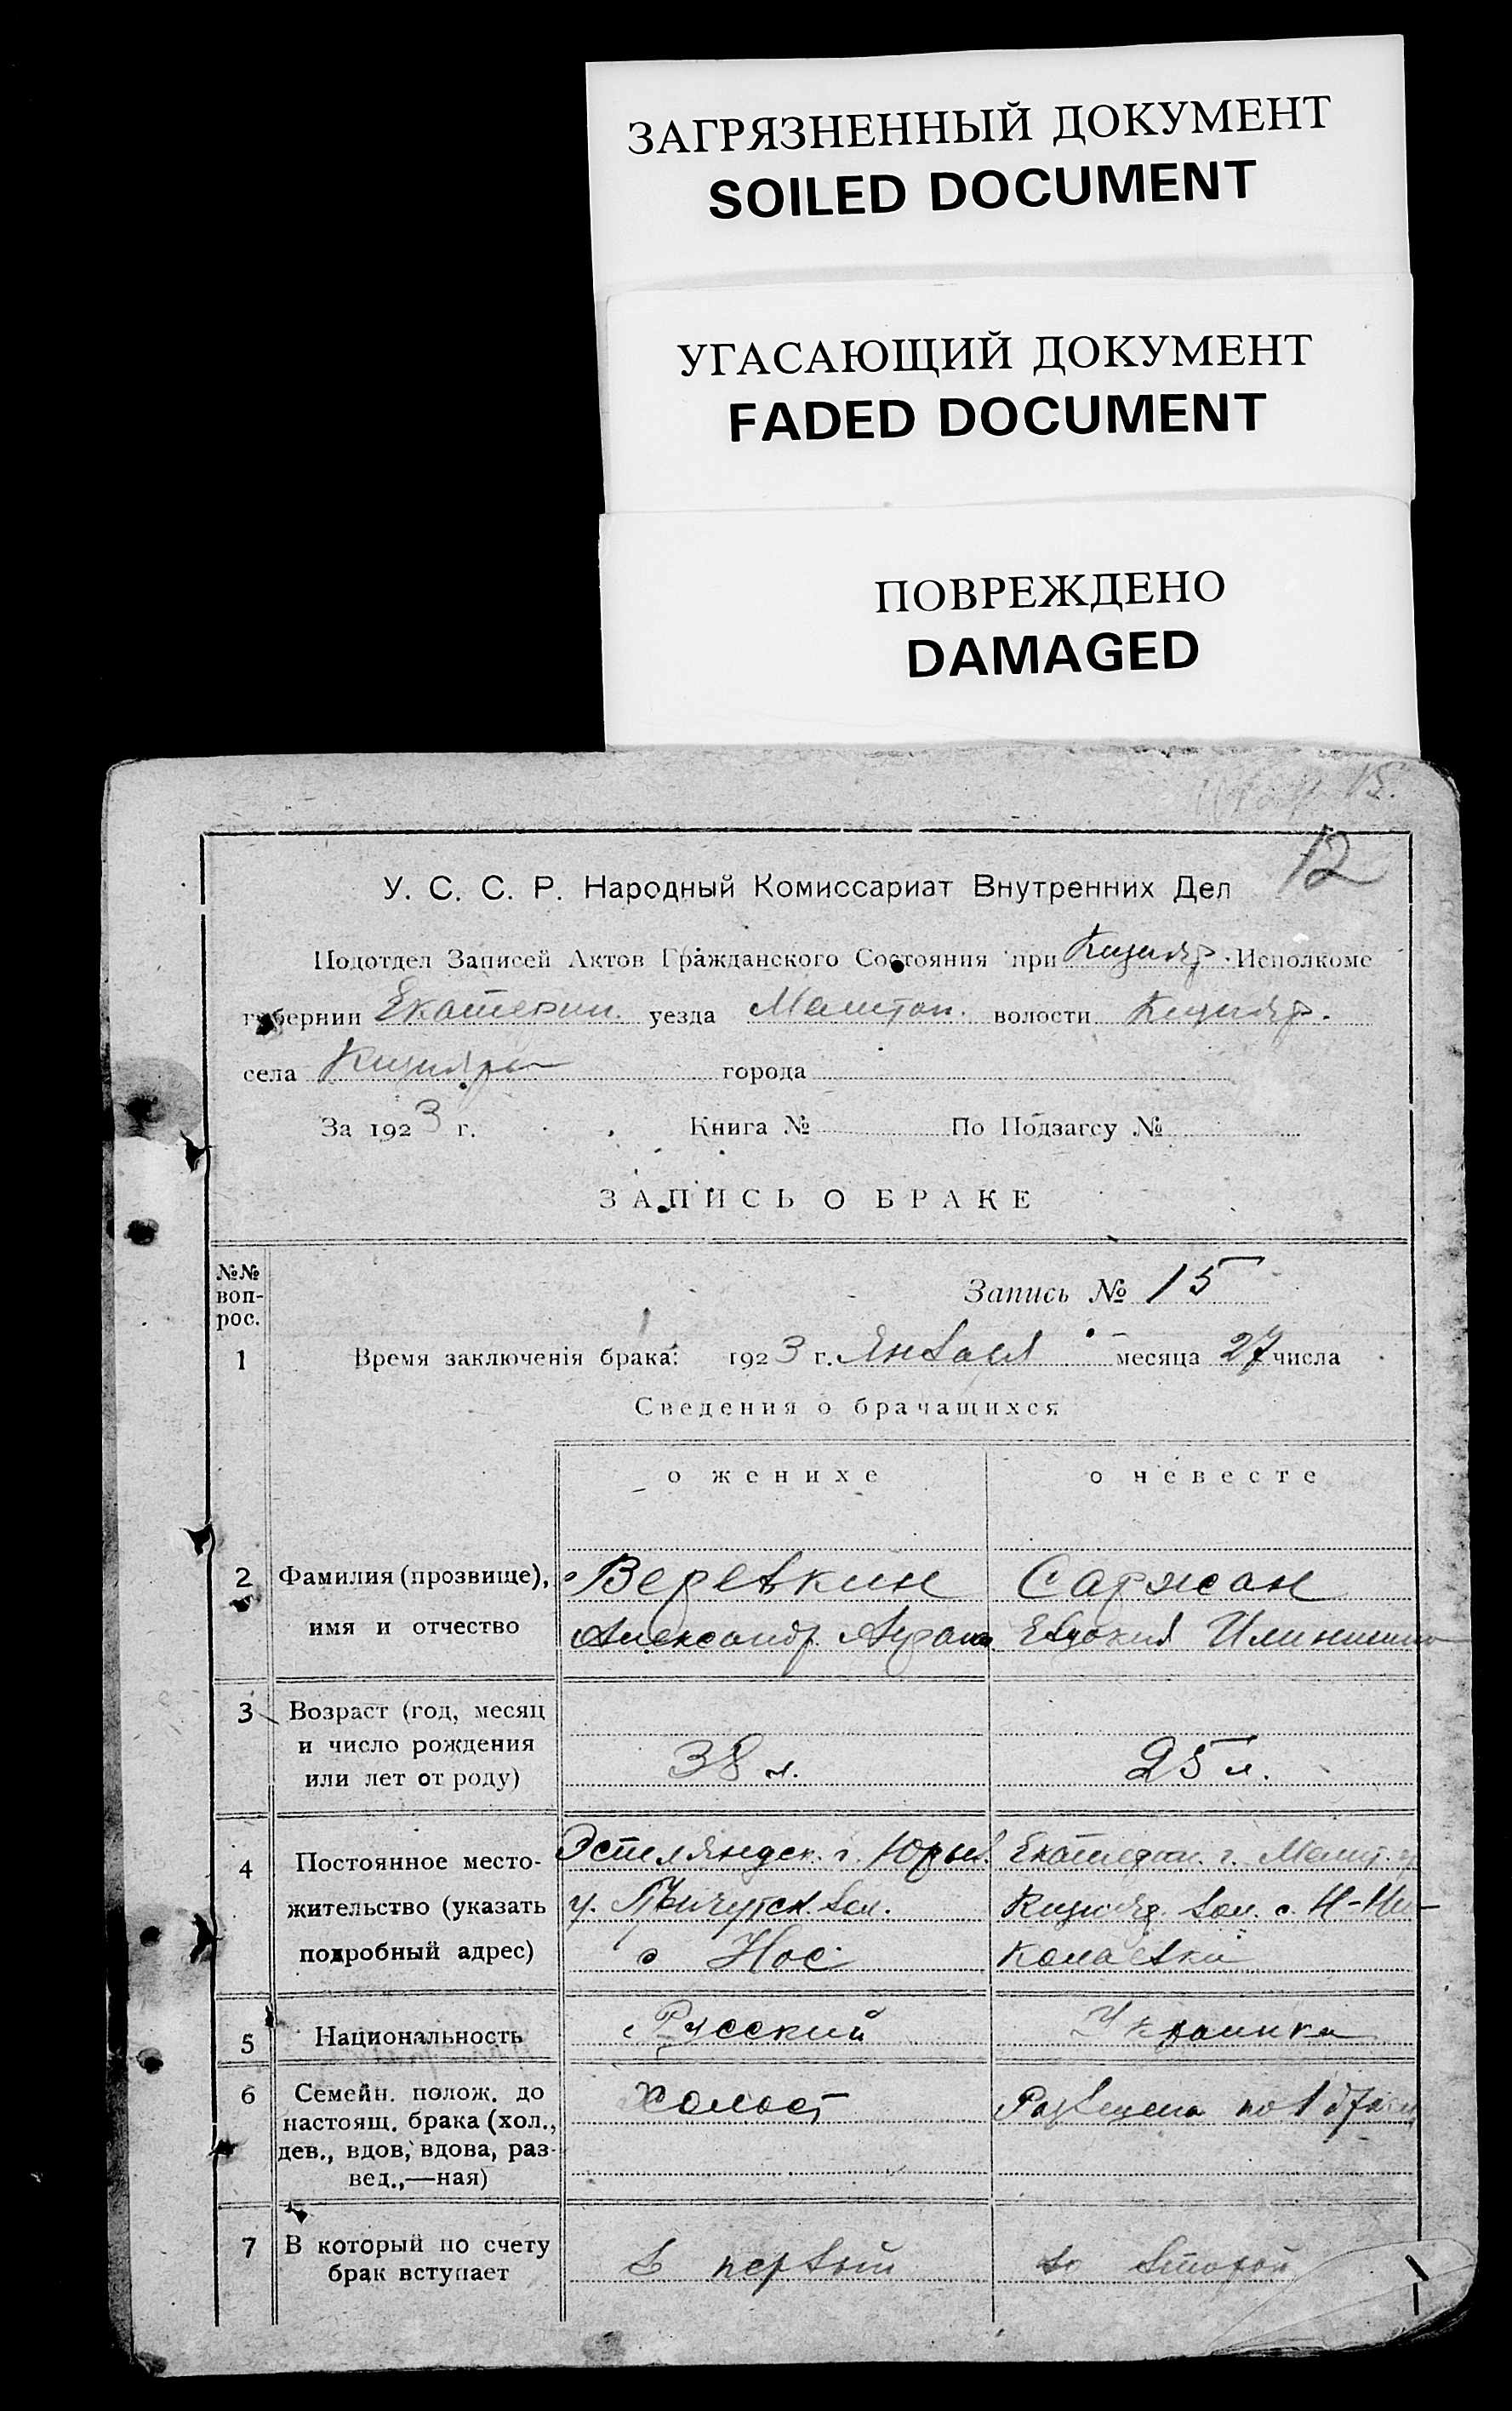 ЗАГРЯЗНЕННЫЙ ДОКУМЕНТ
SOILED DOCUMENT
УГАСАЮЩИЙ ДОКУМЕНТ
FADED DOCUMENT
ПОВРЕЖДЕНО
DAMAGED
15.
12
У. С. С. Р. Народный Комиссариат Внутренних Дел
Подотдел Записей Актов Гражданского Состояния при Кизияр. Исполкоме
губернии Екатерин. уезда Мелитоп. волости Кизияр.
села Кизияры города
За 1923 г. Книга № По Подзагсу №
ЗАПИСЬ О БРАКЕ
№№ вопрос.
Запись № 15
1 Время заключенія брака: 1923 г. Января месяца 27 числа
Сведения о брачащихся
о женихе о невесте
2 Фамилия (прозвище), Веревкин Саржан
имя и отчество Александр Евдокия
3 Возраст (год, месяц
и число рождения
или лет от роду) 38 л. 25 л.
4 Постоянное место- Эстляндск. г. Юрьев. Екатерин. г. Мелит. у
жительство (указать у. вол. Кизияр. вол. с. Н-Ни-
подробный адрес) с Нос колаевки
5 Национальность Русский Украинка
6 Семейн. полож. до холост Разведена по
настоящ. брака (хол.,
дев., вдов, вдова, раз-
вед.,—ная)
7 В который по счету
брак вступает в первый во второй